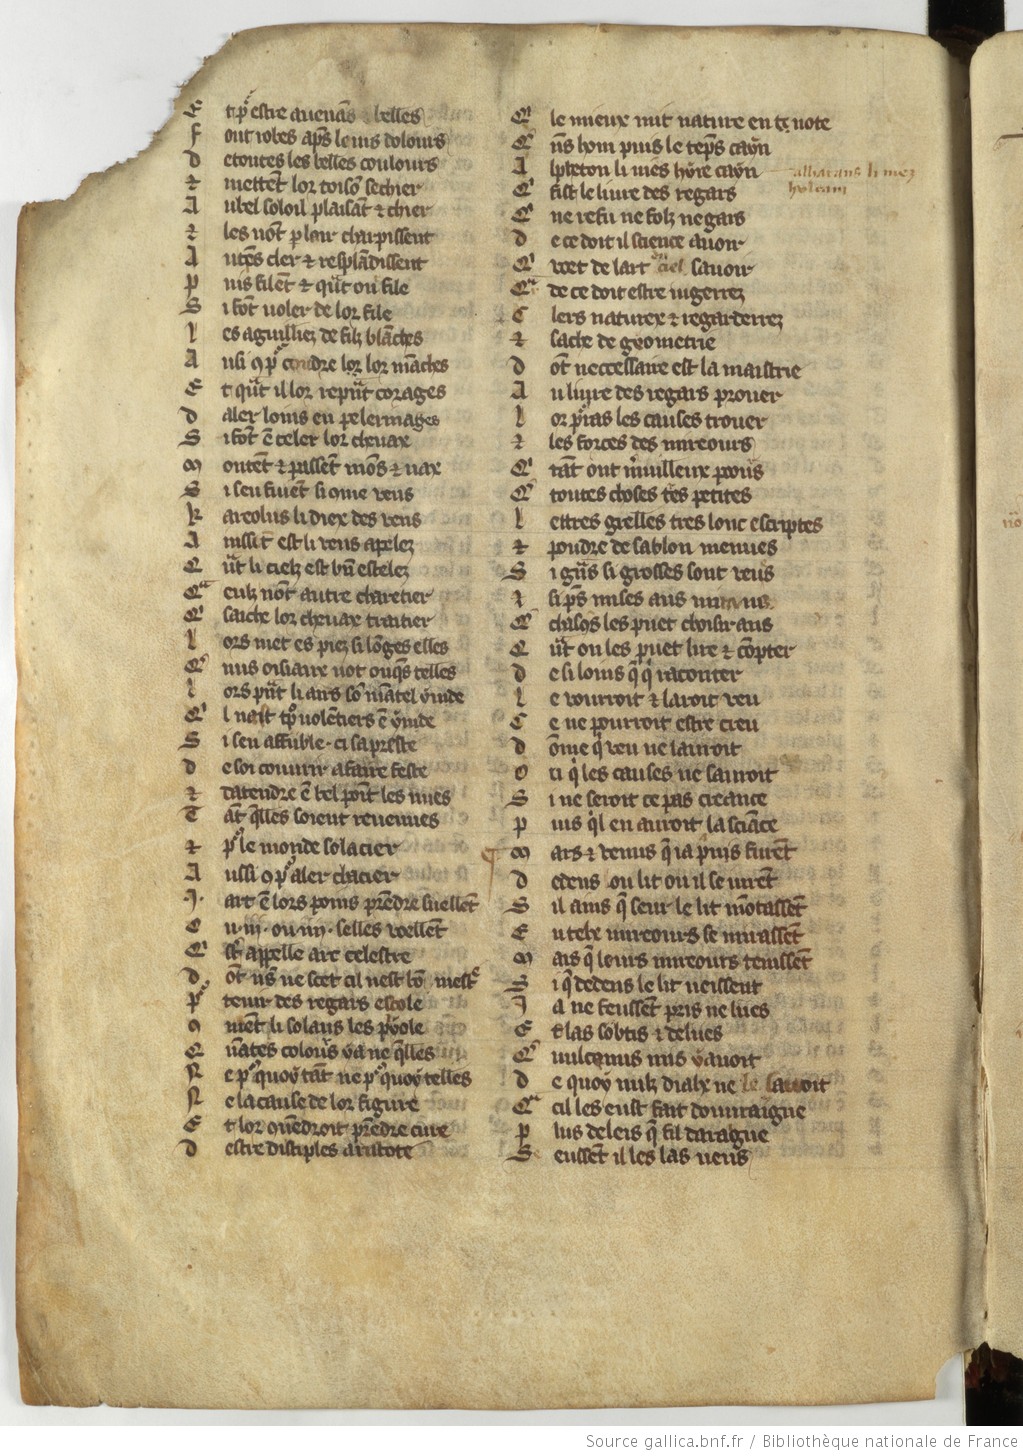 E t pͬ estre auenās ⁊ belles
F ont robes aps̄ leurs dolours
D e toutes les belles coulours
⁊ mettēt lor toisōs sechier
A u bel soloil plaisāt ⁊ chier
⁊ les uōt p lair charpissent
A u tēs cler ⁊ resplādissent
P uis filēt ⁊ qūt ou file
S i fōt uoler de lor file
L es aguilliez de filz blāches
A usi ꝯ pͬ coudre lor lor māches
E t qūt il lor repūt corages
D aler loins en pelerinages
S i fōt ē celer lor cheuax
M ontēt ⁊ passēt mōs ⁊ uax
S i sen fuient si ꝯme vens
K areolus li diex des vens
A inssīt est li vens apelez
Q ūt li cielz est bn̄ estelez
Q eulz nōt autre charetier
Q saiche lor cheuax traitier
L ors met es piez si lōges elles
Q nus oisiaux not onqs telles
L ors pūt li airs sō mātel ynde
Q l uest tͦp uolētiers ē ynde
S i sen affuble · ⁊ si sapreste
D e soi couurir a faire feste
⁊ datendre ē bel poīt les nues
T āt qͤlles soient reuenues
⁊ pͬ le monde solacier
A ussi ꝯ pͬ aler chacier
I. art ē lors poins prēdre suellēt
O u · iii · ou · iiii · selles voellēt
Q sͬt appelle arc celestre
D ōt nͥs ne scet cil nest bō mestͤ
Pͬ tenir des regars escole
ꝯ mēt li solaus les pyole
Q ūātes colours ya ne qͤlles
N e pͬ quoy tāt ne pͬ quoy telles
N e la cause de lor figure
E t lor ꝯuēdroit prēdre cure
D estre disciples aristote
Q le mieux mit nature en tͣ note
Q nͥs hom puis le teps cayn
A lpleton li mēs hyre cayn
albatans li niez
holcam
Q fist le liure des regars
Q ne refu ne folz ne gars
D e ce doit il science auoir
Q voet de lart en ciel sauoir
Q de ce doit estre iugerrez
C lers naturex ⁊ regarderrez
⁊ sache de geometrie
D ōt neccessaire est la maistrie
A u liure des regars prouer
L or pͣras les causes trouer
⁊ les forces des mireours
Q tāt ont mͬuilleux poōis
Q toutes choses tͤs petites
L ettres grelles tres lonc escriptes
⁊ poudre de sablon menues
S i gͣns si grosses sont veus
⁊ si pͤs mises aus
Q chasᵒs les puet choisir aus
Q ūt on les puet lire ⁊ cōpter
D e si loins qͥ qͥ raconter
L e vourroit ⁊ lauoit veu
C e ne pourroit estre creu
D ōme qͥ veu ne lauroit
O u qͥ les causes ne sauroit
S i ne seroit ce pas creance
P uis qͥl en auroit la sciāce
M ars ⁊ venus qͥ ia pris furēt
D edens ou lit ou il se iurēt
S il ains qͤ seur le lit mōtassēt
E n telx mireours se mirassēt
M ais qͤ leurs mireours tenissēt
S i qͤ dedens le lit ueissent
I a ne feussēt pris ne lues
E s las sobtis ⁊ delues
Q uulcanus mis y auoit
D e quoy nulz dialx ne le sauoit
Q cil les eust fait douuraigne
P lus deleie qͤ fil daraigne
S eussēt il les las ueus
Source gallica.bnf.fr / Bibliothèque nationale de France